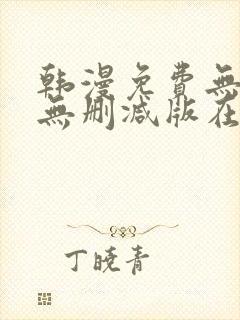 韩漫免費無
無删减版在
丁曉青